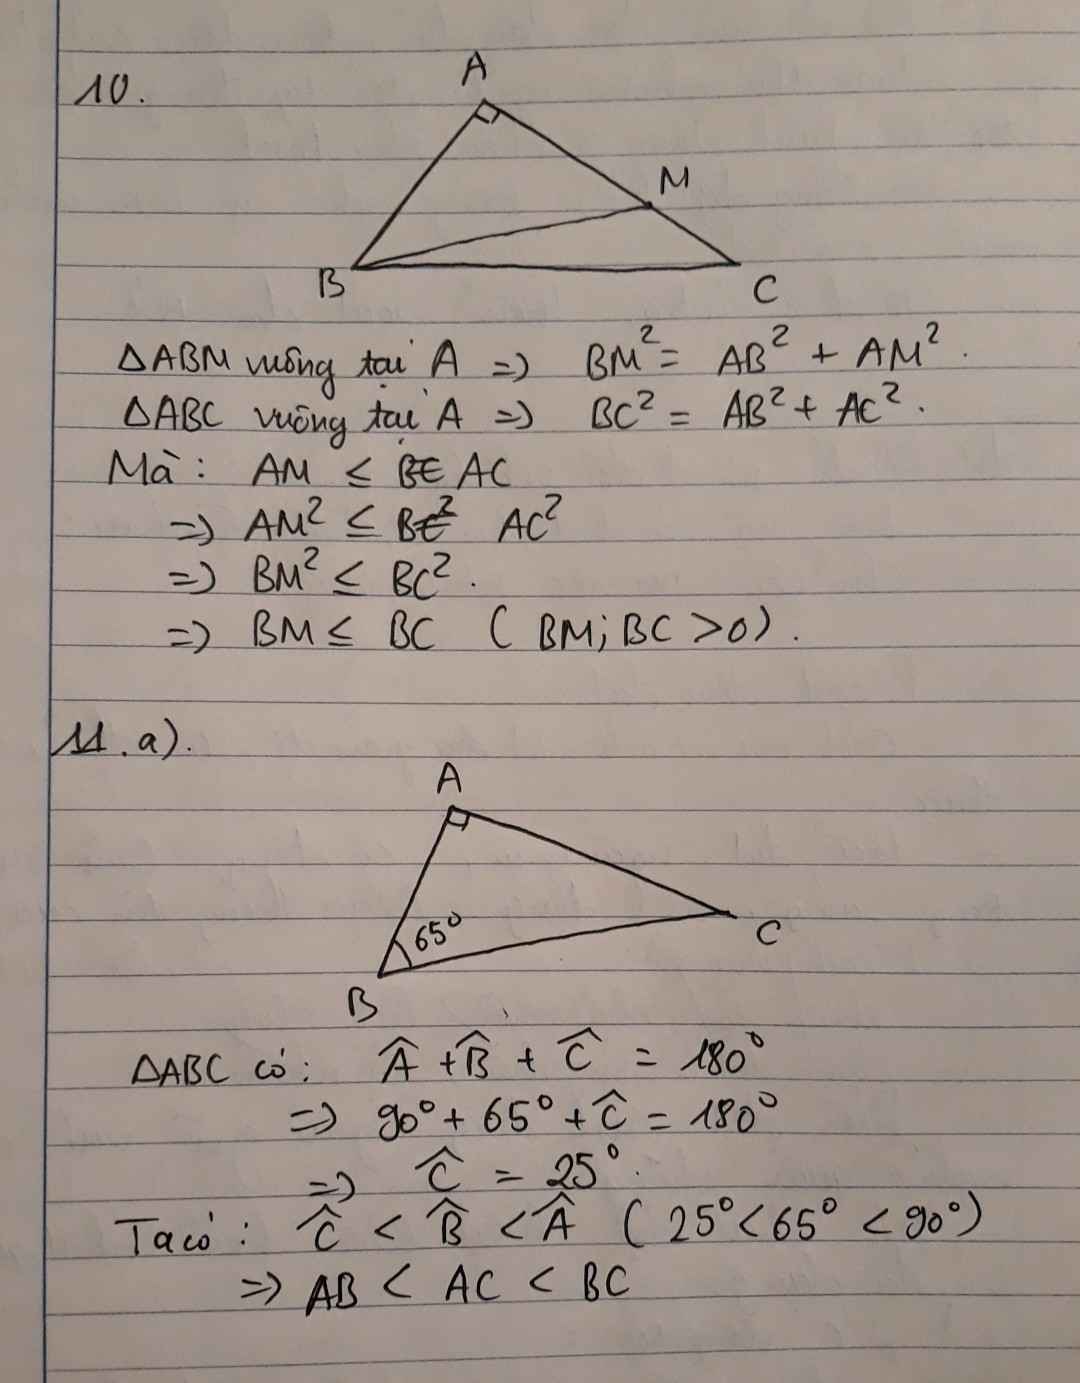 10.
A
M
B
C
ΔABM vuông tại A => BM² = AB² + AM².
ΔABC vuông tại A => BC² = AB² + AC².
Mà: AM ≤ BC AC
=> AM² ≤ BC² AC²
=> BM² ≤ BC².
=> BM ≤ BC (BM; BC > 0).
11.a).
A
65°
C
B
ΔABC có: Â + B̂ + Ĉ = 180°
=> 90° + 65° + Ĉ = 180°
=> Ĉ = 25°.
Ta có: Ĉ < B̂ < Â (25° < 65° < 90°)
=> AB < AC < BC